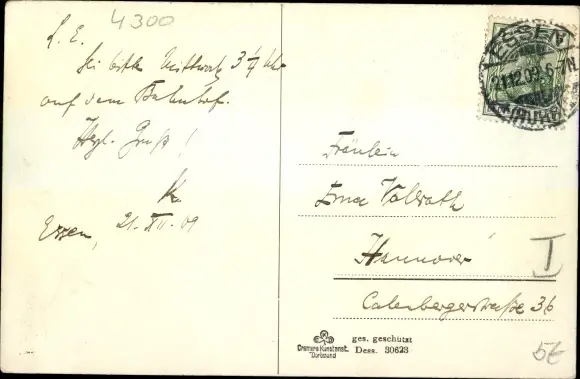 4300
L. E.
Sei bitte Mittwoch 3 1/4 Uhr
auf dem Bahnhof.
Herzl. Gruß!
Essen, 21. XII. 09
ESSEN
21.12.09. 6-7N.
(RUHR)
Fräulein
Erna Vollrath
Hannover
I
Calenbergerstraße 36
Cramers Kunstanst.
Dortmund
ges. geschützt
Dess. 30623
5€